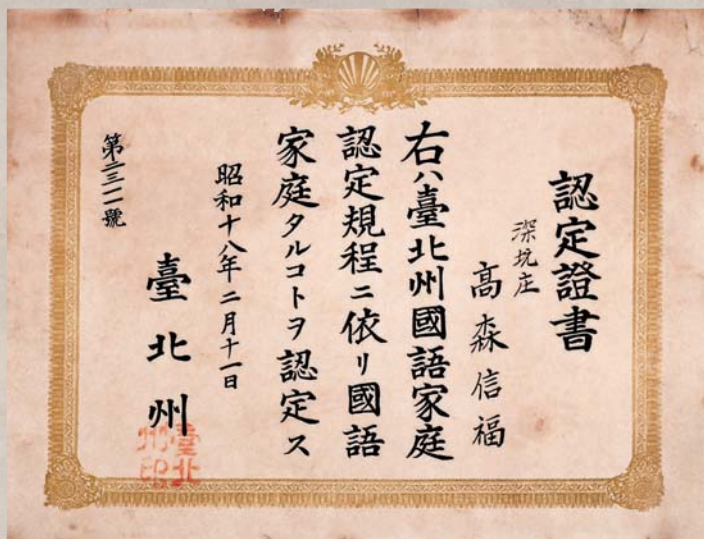 認定證書
深坑庄
高森信福
右ハ臺北州國語家庭
認定規程ニ依リ國語
家庭タルコトヲ認定ス
昭和十八年二月十一日
臺北州
臺北州印
第二三一一號